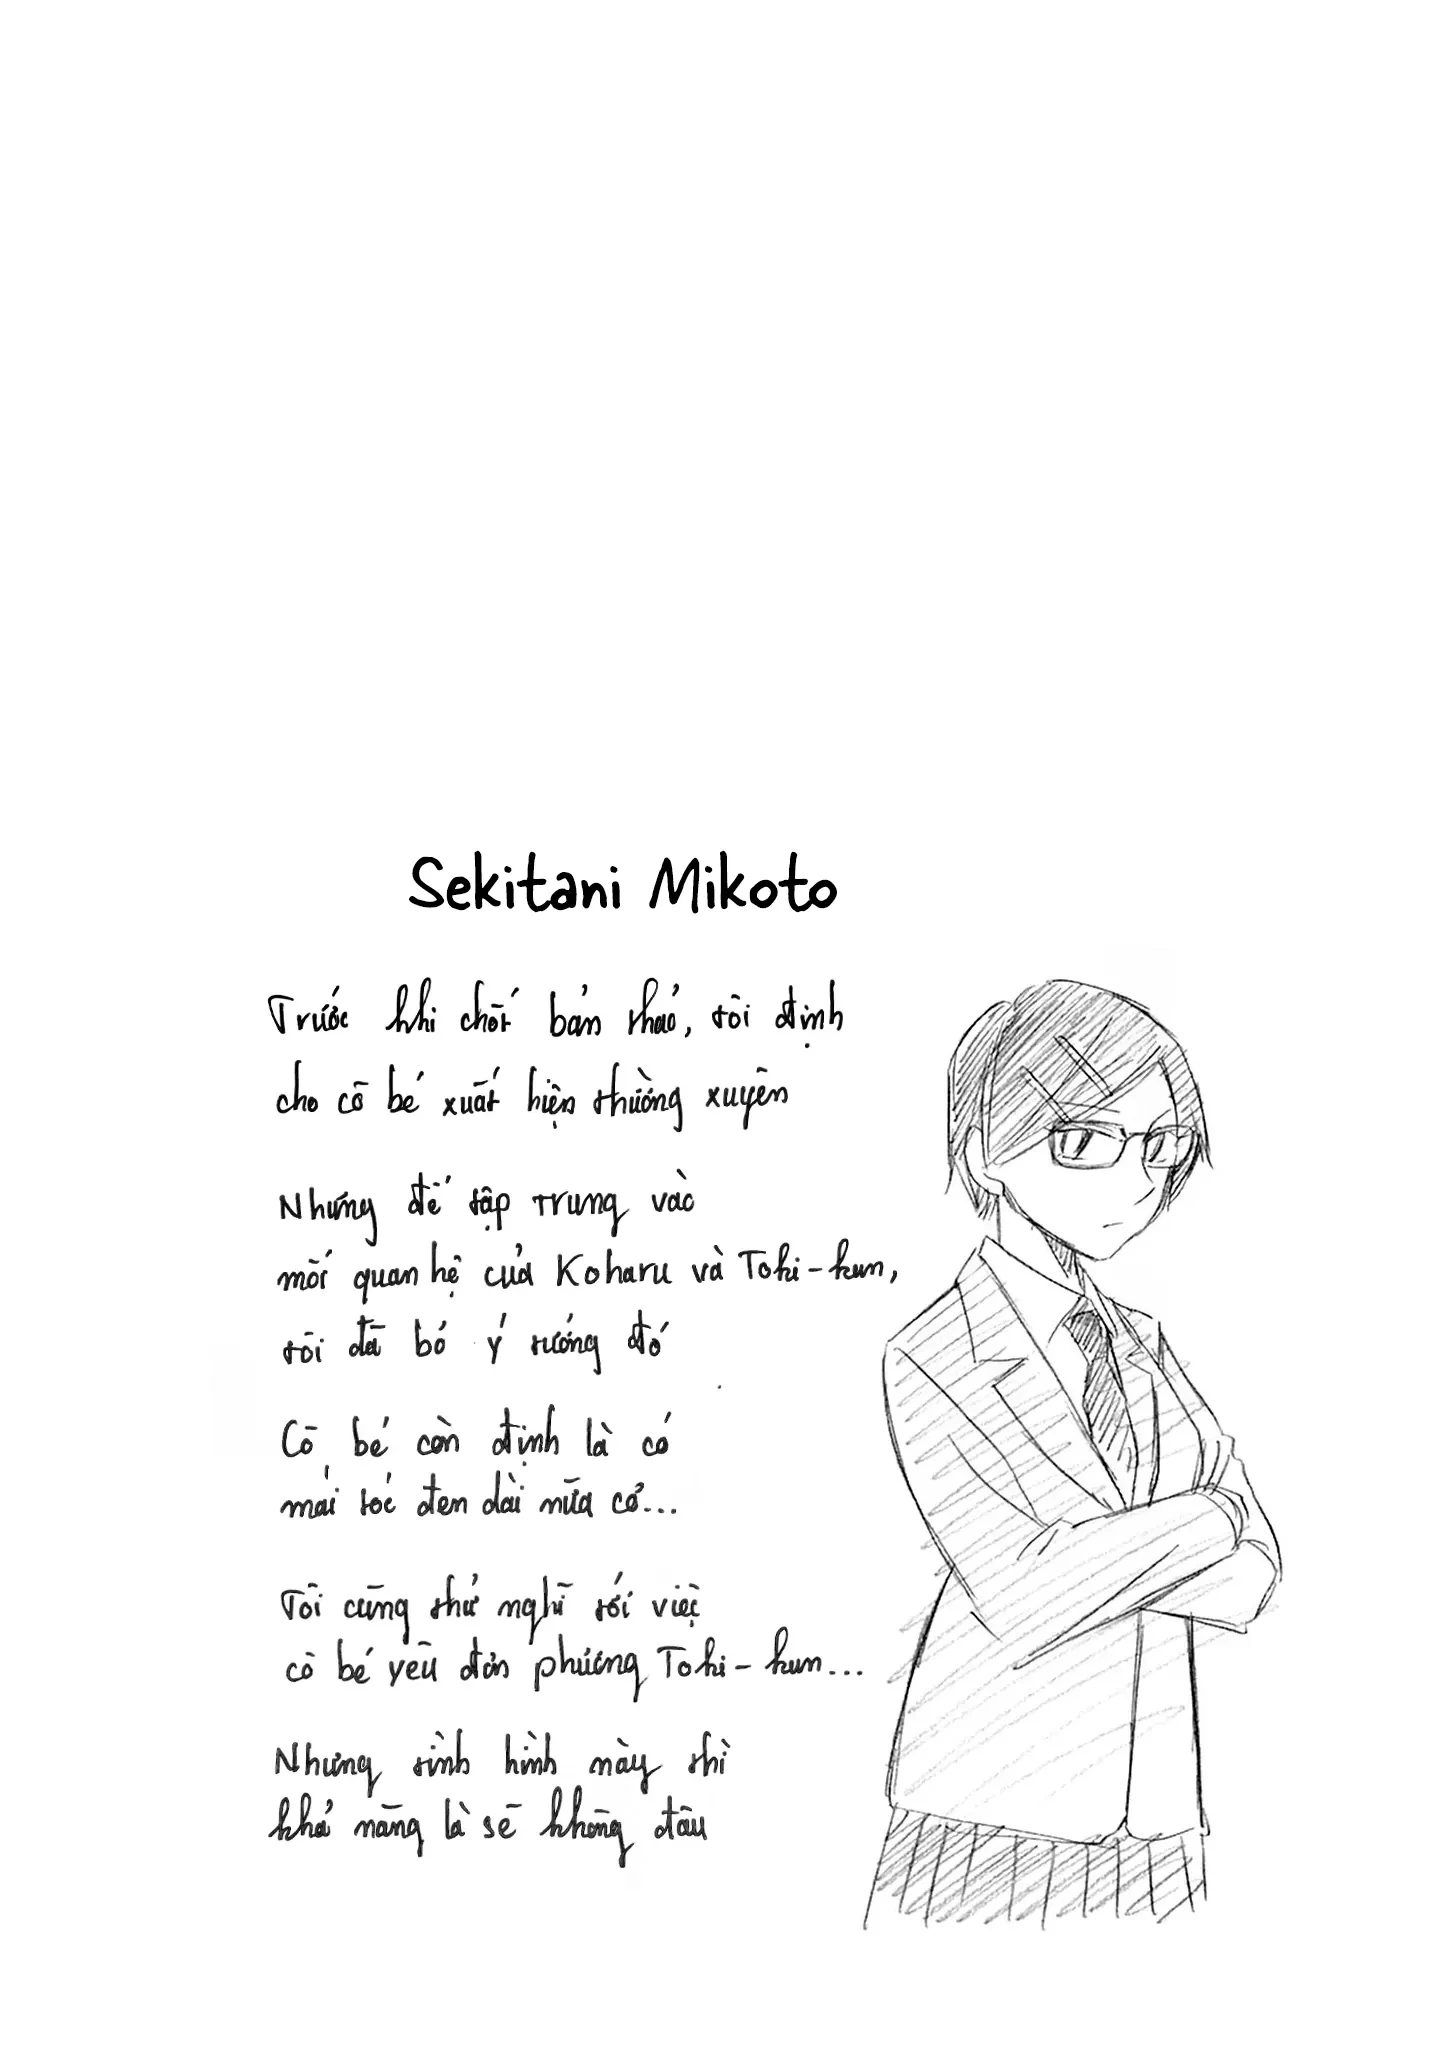 Sekitani Mikoto
Trước khi chốt bản thảo, tôi định
cho cô bé xuất hiện thường xuyên
Nhưng để tập trung vào
mối quan hệ của Koharu và Toki-kun,
tôi đã bỏ ý tưởng đó
Cô bé còn định là có
mái tóc đen dài nữa cơ...
Tôi cũng thử nghĩ tới việc
cô bé yêu đơn phương Toki-kun...
Nhưng tình hình này thì
khả năng là sẽ không đâu